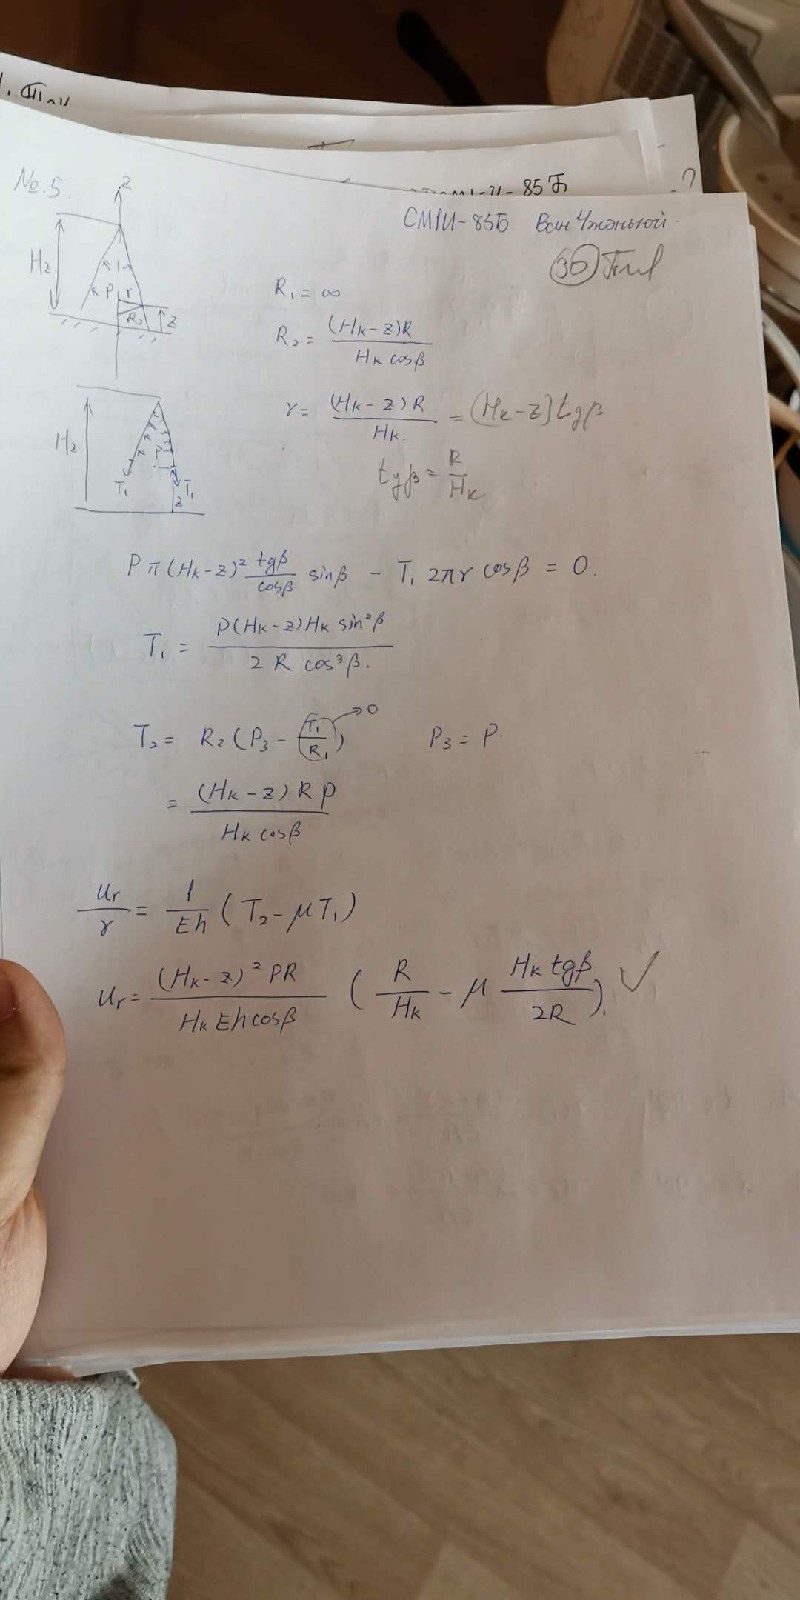 №.5
СМ1И-85Б Ван Чжэньюй
-85Б
?
30
z
H₂
P
r
R₂
z
R₁ = ∞
R₂ = (Hк-z)R / Hк cosβ
r = (Hк-z)R / Hк = (Hк-z)tgβ
tgβ = R / Hк
H₂
P
T₁ T₁
z
Pπ(Hк-z)² tgβ/cosβ sinβ - T₁ 2πr cosβ = 0.
T₁ = P(Hк-z)Hк sin²β / 2 R cos³β.
T₂ = R₂(P₃ - (T₁/R₁)) → 0 P₃ = P
= (Hк-z) R P / Hк cosβ
uᵣ/r = 1/Eh (T₂ - μT₁)
uᵣ = (Hк-z)² PR / Hк Eh cosβ (R/Hк - μ Hк tgβ/2R). ✓